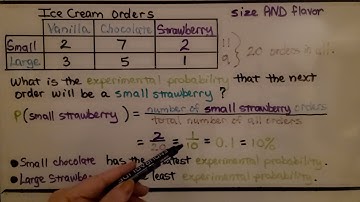 Ice Cream Orders
size AND flavor
Vanilla Chocolate Strawberry
Small 2 7 2 11
Large 3 5 1 9
20 orders in all.
What is the experimental probability that the next
order will be a small strawberry?
P(small strawberry) = number of small strawberry orders
total number of all orders
= 2/20 = 1/10 = 0.1 = 10%
Small chocolate has the greatest experimental probability.
Large Strawberry least experimental probability.